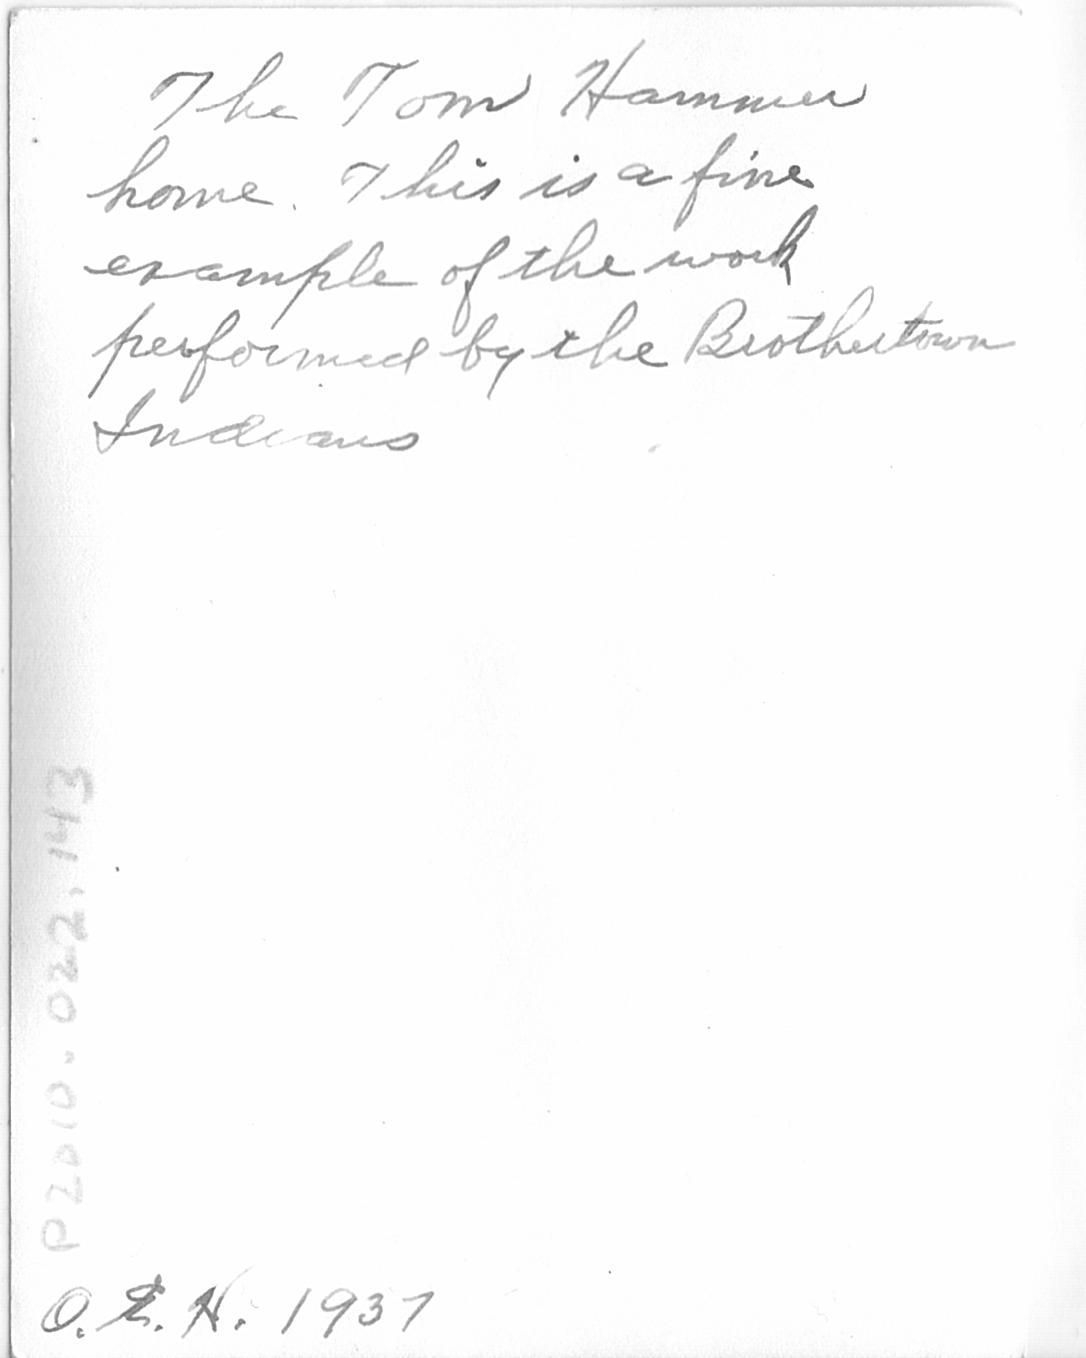 The Tom Hammer
home. This is a fine
example of the work
performed by the Brothertown
Indians
P2010.022.143
O. E. H. 1937